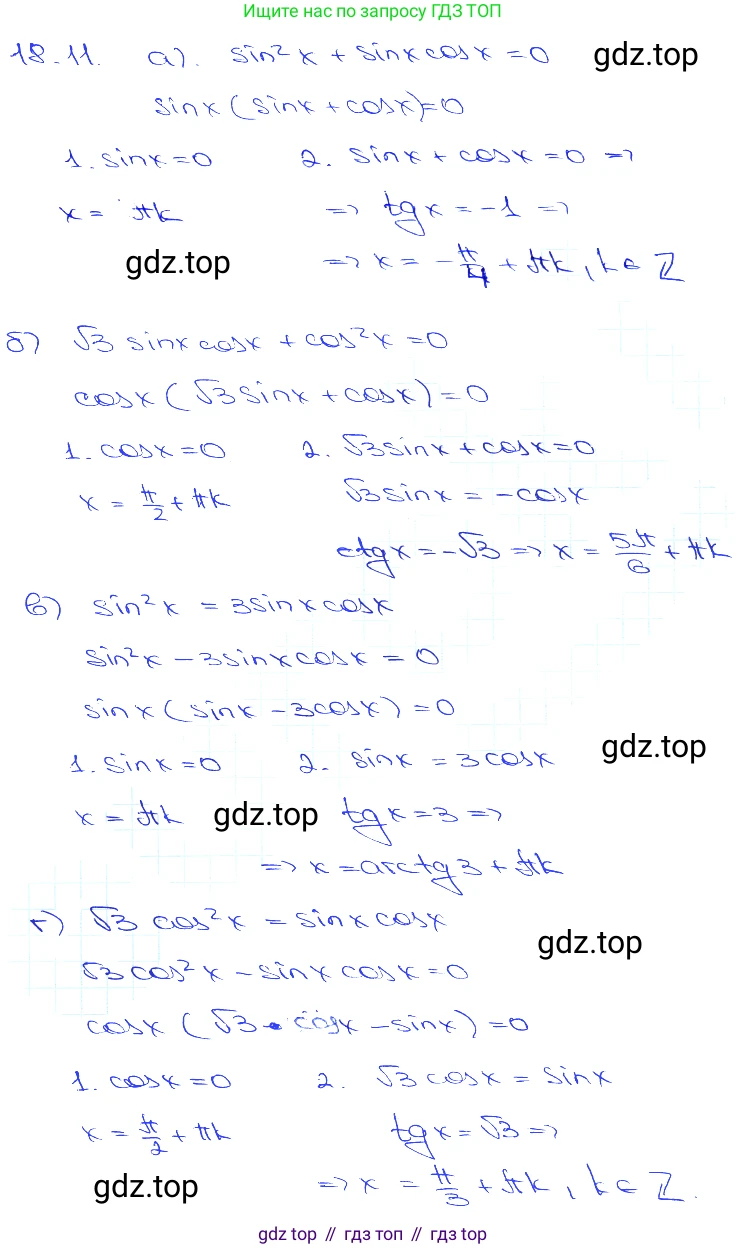 Ищите нас по запросу ГДЗ ТОП
18.11. а). sin²x + sinx cosx = 0 gdz.top
sinx (sinx + cosx) = 0
1. sinx = 0 2. sinx + cosx = 0 =>
x = πk => tgx = -1 =>
gdz.top => x = -π/4 + πk, k ∈ Z
б) √3 sinx cosx + cos²x = 0
cosx (√3 sinx + cosx) = 0
1. cosx = 0 2. √3 sinx + cosx = 0
x = π/2 + πk √3 sinx = -cosx
ctgx = -√3 => x = 5π/6 + πk
в) sin²x = 3sinx cosx
sin²x - 3sinx cosx = 0
sinx (sinx - 3cosx) = 0
1. sinx = 0 2. sinx = 3cosx gdz.top
x = πk gdz.top tgx = 3 =>
=> x = arctg3 + πk
г) √3 cos²x = sinx cosx
gdz.top
√3 cos²x - sinx cosx = 0
cosx (√3 · cosx - sinx) = 0
1. cosx = 0 2. √3 cosx = sinx
x = π/2 + πk tgx = √3 =>
gdz.top => x = π/3 + πk, k ∈ Z.
gdz top // гдз топ // gdz top